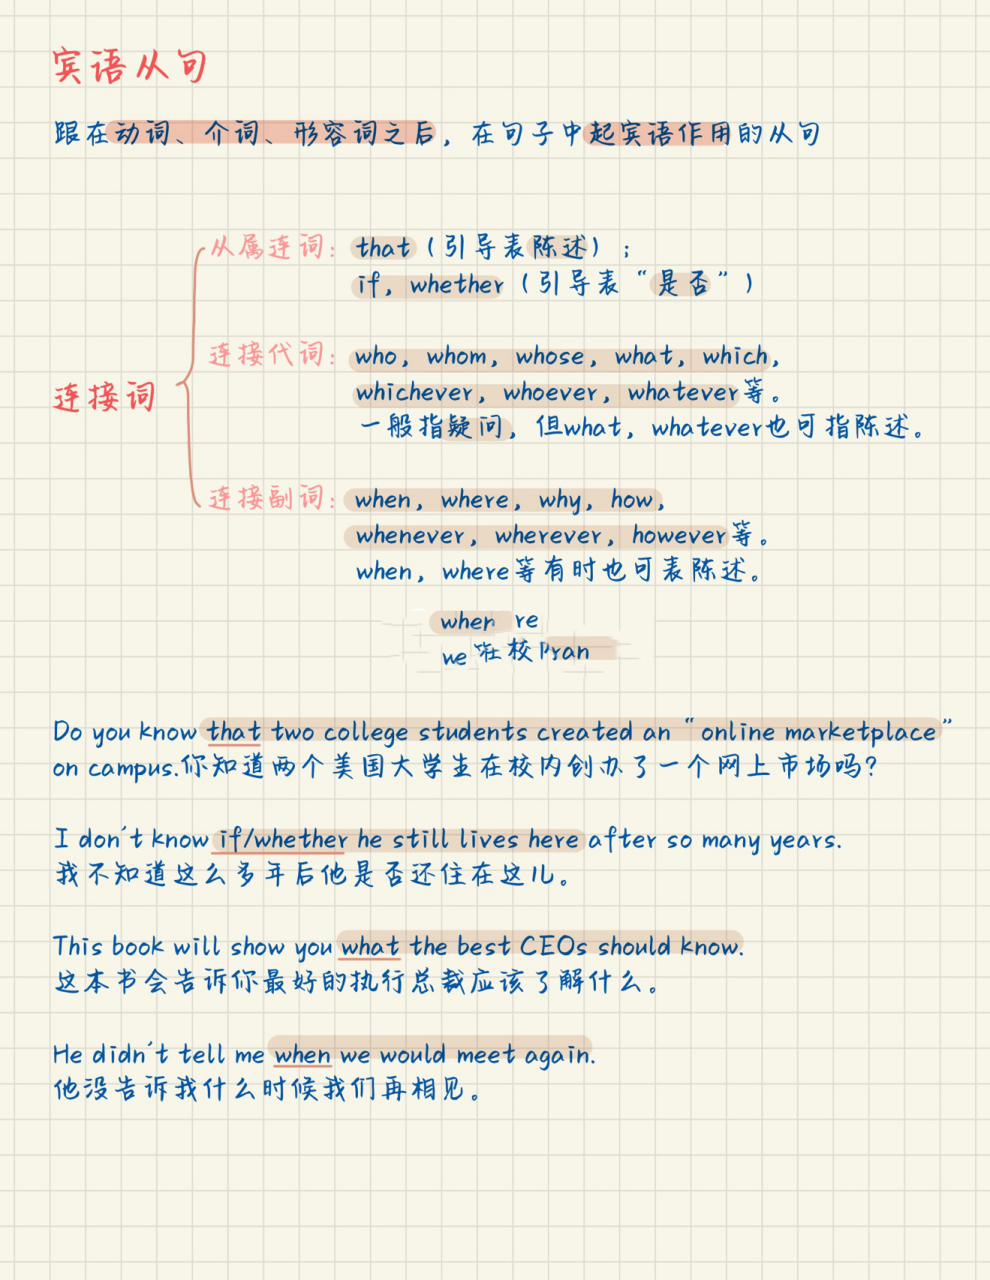 宾语从句
跟在动词、介词、形容词之后，在句子中起宾语作用的从句
从属连词：that（引导表陈述）；
if，whether（引导表“是否”）
连接代词：who，whom，whose，what，which，
whichever，whoever，whatever等。
一般指疑问，但what，whatever也可指陈述。
连接词
连接副词：when，where，why，how，
whenever，wherever，however等。
when，where等有时也可表陈述。
when re
we 在校
Do you know that two college students created an “online marketplace”
on campus.你知道两个美国大学生在校内创办了一个网上市场吗？
I don't know if/whether he still lives here after so many years.
我不知道这么多年后他是否还住在这儿。
This book will show you what the best CEOs should know.
这本书会告诉你最好的执行总裁应该了解什么。
He didn't tell me when we would meet again.
他没告诉我什么时候我们再相见。